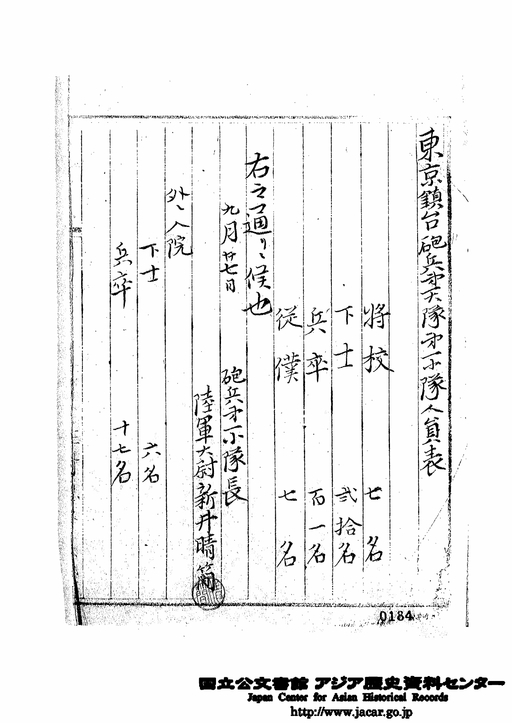 東京鎮台砲兵第一大隊第一小隊人員表
将校 七名
下士 弐拾名
兵卒 百一名
従僕 七名
右之通リニ候也
九月廿七日
砲兵第一小隊長
陸軍大尉新井晴簡
外ニ入院
下士 六名
兵卒 十七名
0184
国立公文書館 アジア歴史資料センター
Japan Center for Asian Historical Records
http://www.jacar.go.jp